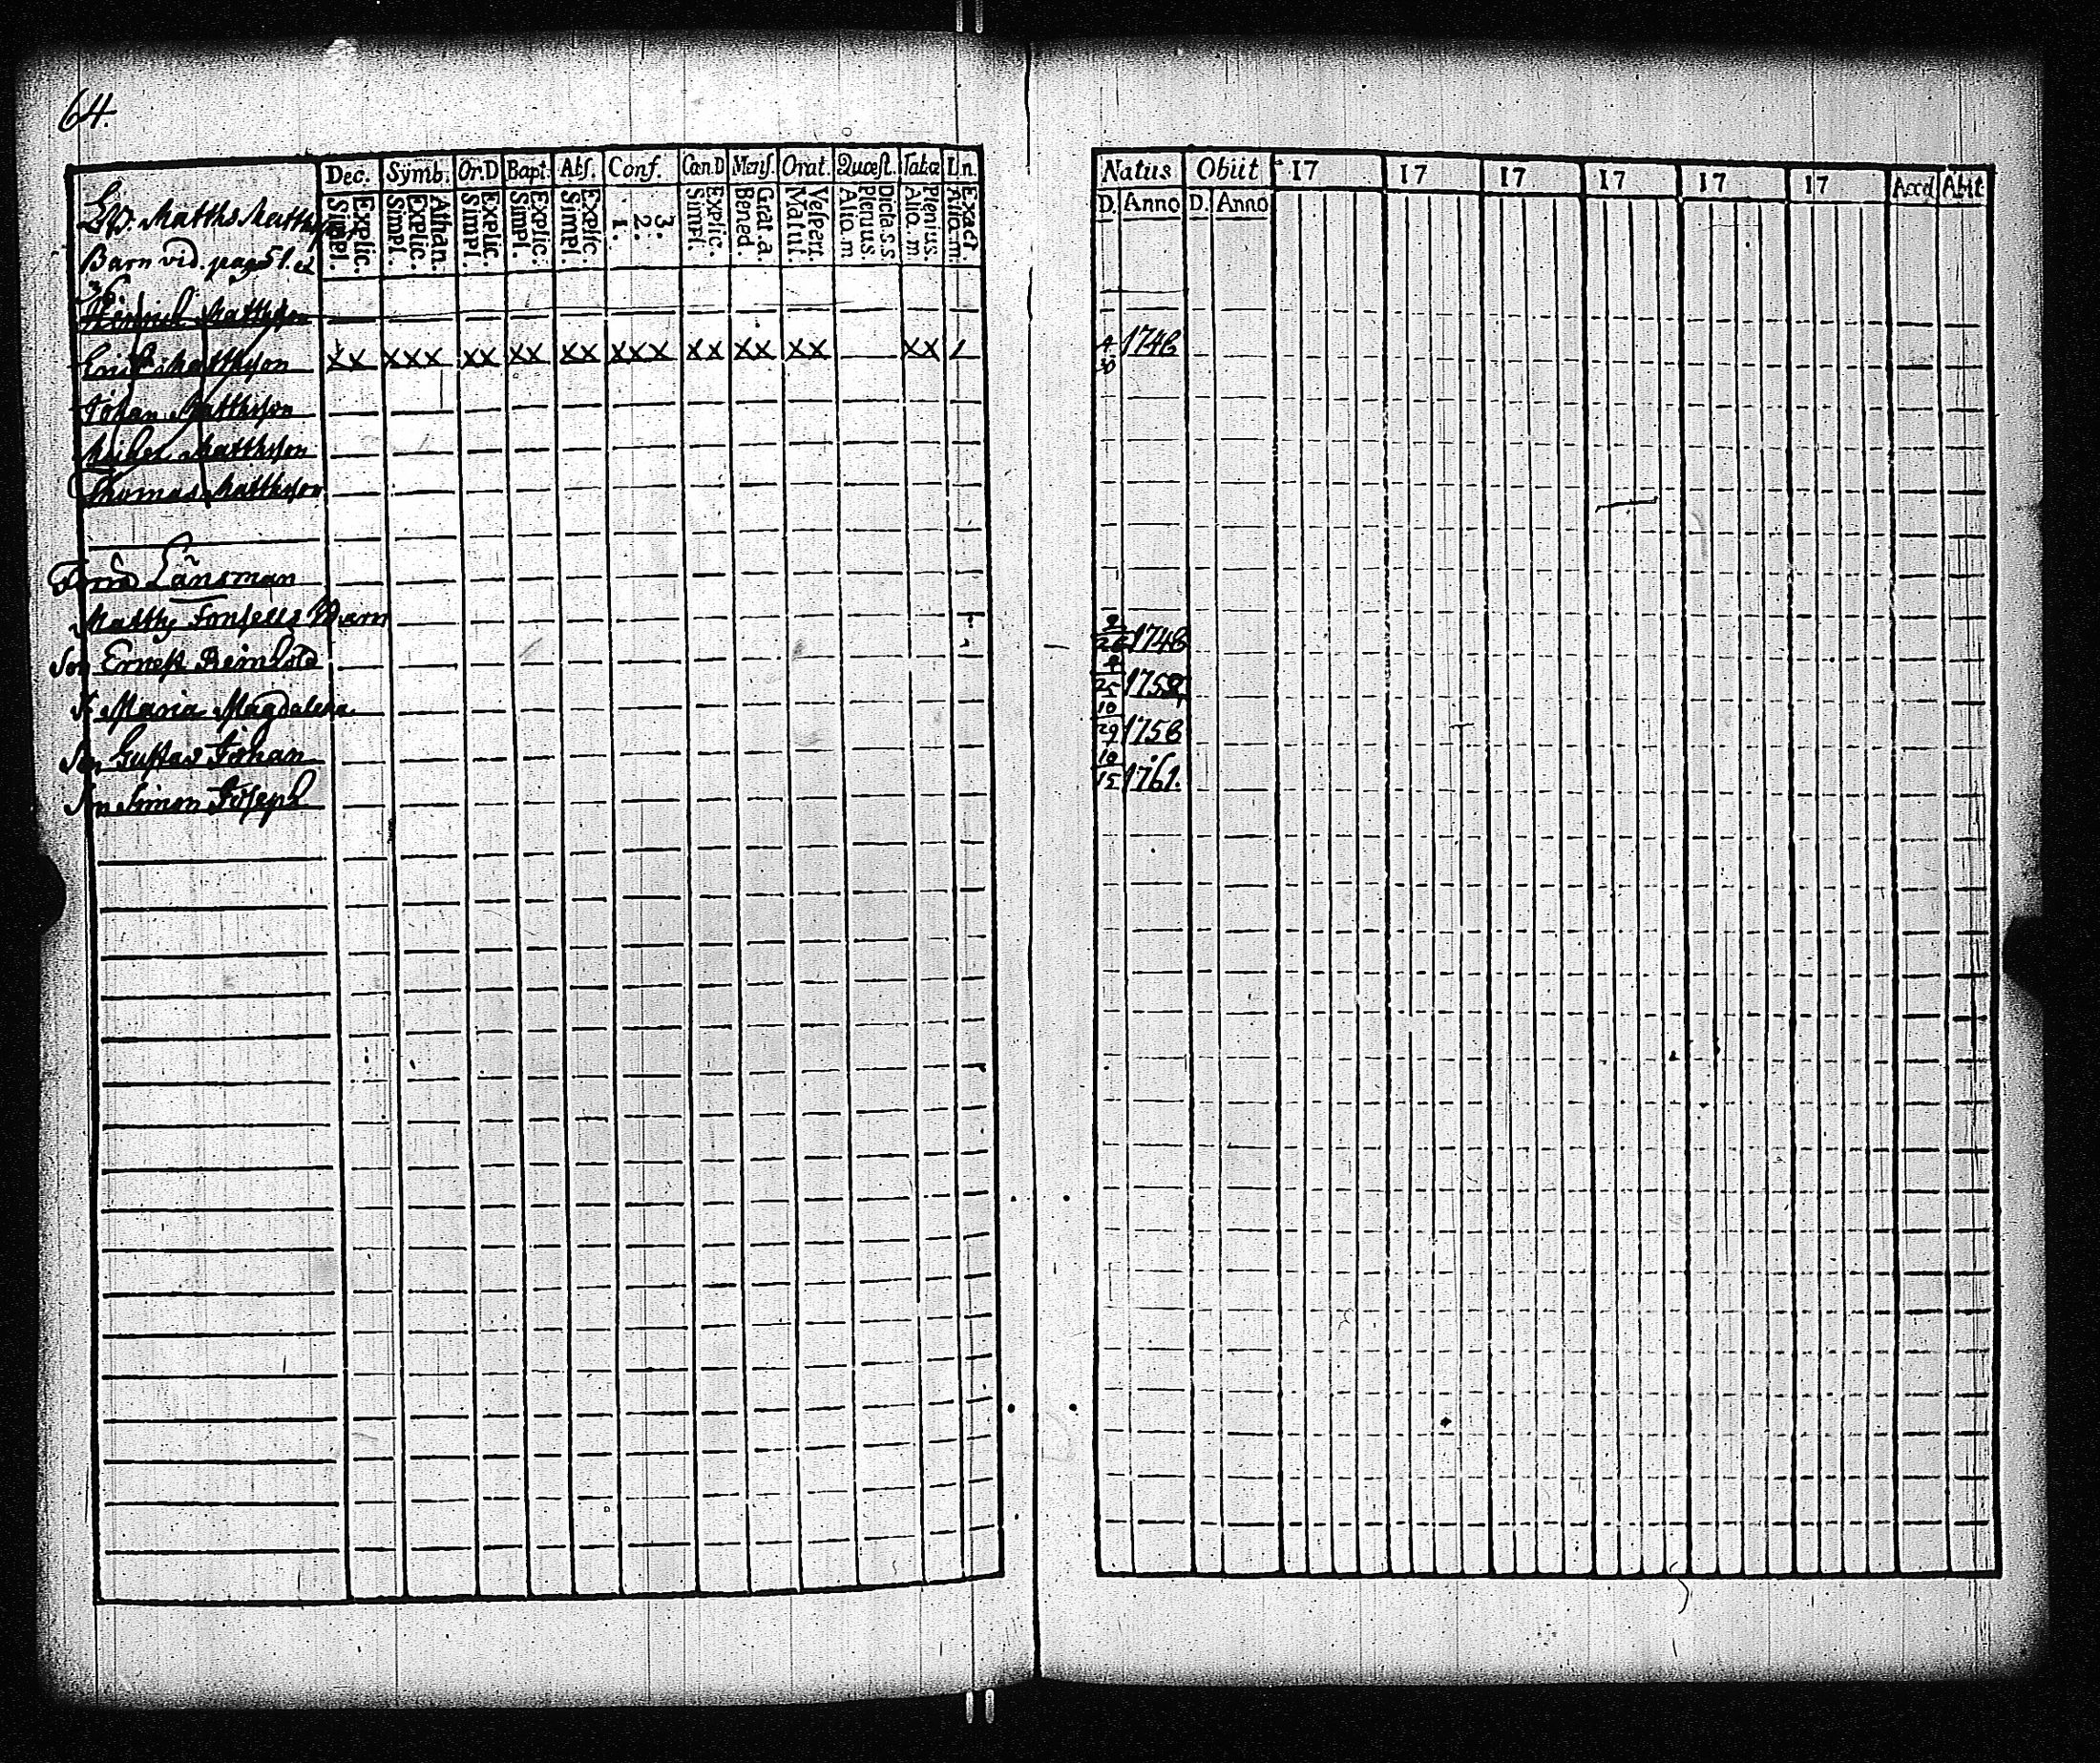 64.
Dec. Symb. Or.D Bapt. Abs. Conf. Cœn.D Mens. Orat. Quæst. Tabæ I.n.
Simpl. Explic. Simpl. Explic. Athan. Simpl. Explic. Simpl. Explic. Simpl. Explic. 1. 2. 3. Simpl. Explic. Bened. Grat.a. Matut. Vespert. Aliq.m Plenius. Dicta.s.s Aliq.m Plenius. Aliq.m. Exact.
Natus Obiit 17 17 17 17 17 17 Acced Abit
D. Anno D. Anno
Matths Matthsson
Barn vid. pag 51. et
36.
Henrich Matthsson
Erich Matthsson xx xxx xx xx xx xxx xx xx xx xx 4 30 1748
Johan Matthsson
Michel Matthsson
Thomas Matthsson
Länsman
Matths Fonsells Barn
Son Ernest Reinhold 2 26 1748
D. Maria Magdalena 9 25 1752
Son Gustav Johan 10 29 1758
Son Simon Joseph 10 15 1761.